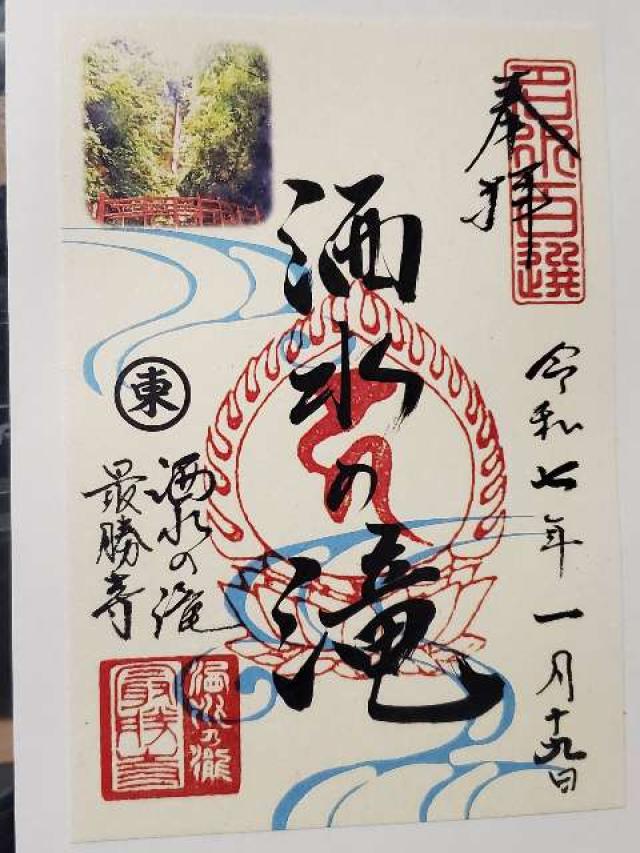 奉拝
名水百選
令和七年一月十九日
洒水の滝
東
洒水の滝
最勝寺
洒水乃瀧
最勝寺